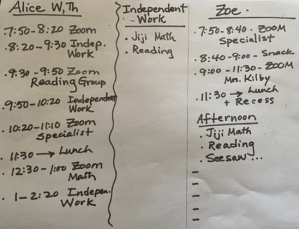 Alice W,Th
·7:50-8:20 Zoom
·8:20-9:30 Indep.
Work
·9:30-9:50 Zoom
Reading Group
·9:50-10:20 Independent
Work
·10:20-11:10 Zoom
Specialist
·11:30 → Lunch
·12:30-1:00 Zoom
Math
·1-2:20 Indepen.
Work
Independent
Work
·Jiji Math
·Reading
Zoe
·7:50-8:40 - ZOOM
Specialist
·8:40-9:00 - Snack
·9:00-11:30 - ZOOM
Mr. Kilby
·11:30 → Lunch
+ Recess
Afternoon
·Jiji Math
·Reading
·Seesaw...